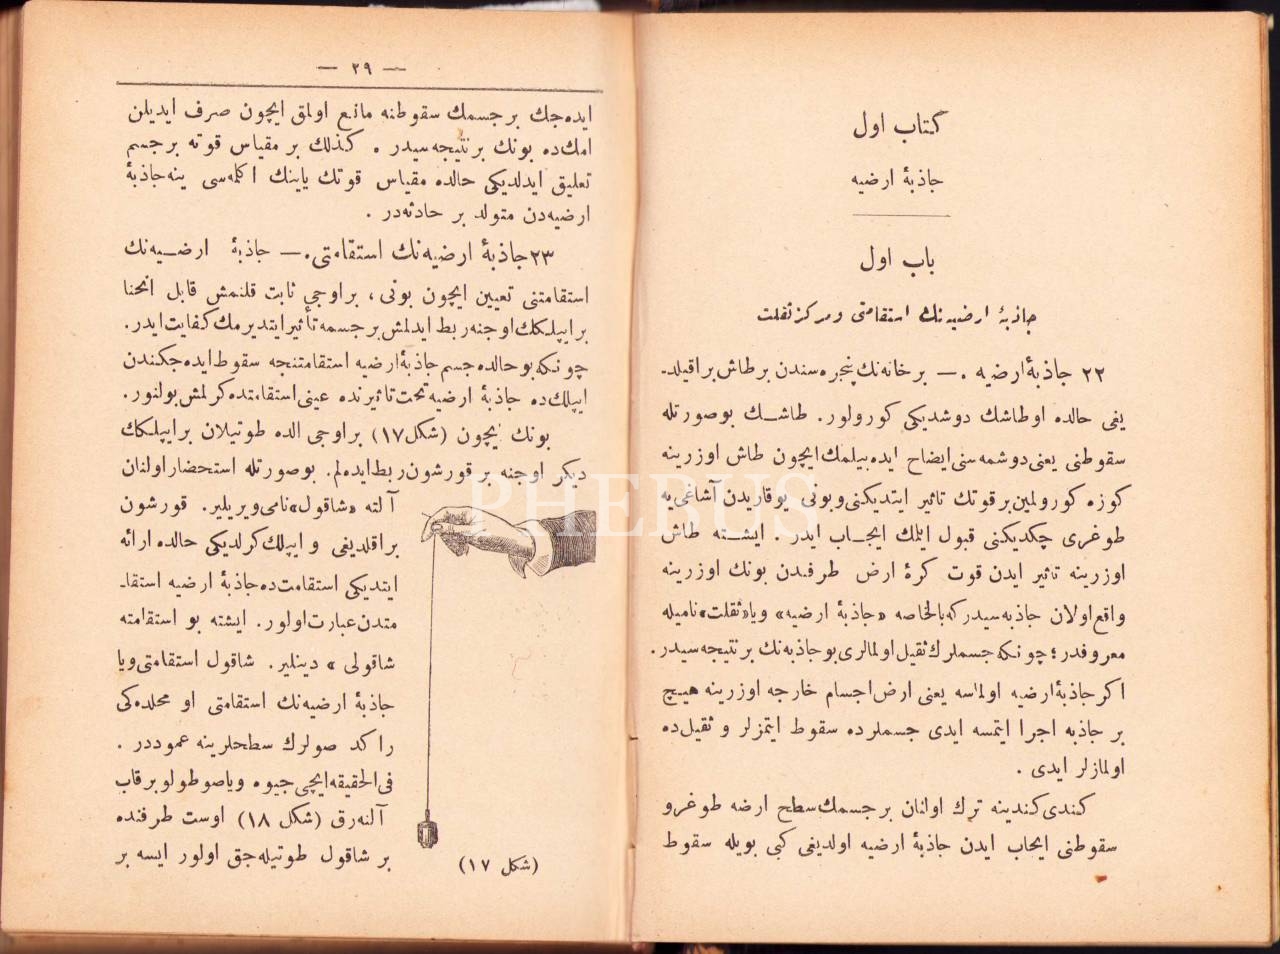 كتاب اول
جاذبهٔ ارضيه
باب اول
جاذبهٔ ارضيه‌نك استقامتى و مركز ثقلت
٢٢ جاذبهٔ ارضيه ٠ — بر خانه‌نك پنجره‌سندن بر طاش براقيلد-
يغى حالده او طاشك دوشديكى كورولور. طاشك بو صورتله
سقوطنى يعنى دوشمه‌سنى ايضاح ايده‌بيلمك ايچون طاش اوزرينه
كوزه كورولمين بر قوتك تاثير ايتديكنى و بونى يوقاريدن آشاغى‌يه
طوغرى چكديكنى قبول ايتمك ايجاب ايدر . ايشته طاش
اوزرينه تاثير ايدن قوت كرهٔ ارض طرفدن بونك اوزرينه
واقع اولان جاذبه‌سيدر كه بالخاصه «جاذبهٔ ارضيه» ويا «ثقلت» ناميله
معروفدر ؛ چونكه جسملرك ثقيل اولمالرى بو جاذبه‌نك بر نتيجه‌سيدر.
اكر جاذبهٔ ارضيه اولماسه يعنى ارض اجسام خارجه اوزرينه هيچ
بر جاذبه اجرا ايتمسه ايدى جسملرده سقوط ايتمزلر و ثقيل ده
اولمازلر ايدى .
كندى كندينه ترك اولنان بر جسمك سطح ارضه طوغرو
سقوطنى ايجاب ايدن جاذبهٔ ارضيه اولديغى كبى بويله سقوط
— ٢٩ —
ايده‌جك بر جسمك سقوطنه مانع اولمق ايچون صرف ايديلن
امك‌ده بونك بر نتيجه‌سيدر . كذلك بر مقياس قوته بر جسم
تعليق ايدلديكى حالده مقياس قوتك ياينك اكلمه‌سى ينه جاذبهٔ
ارضيه‌دن متولد بر حادثه‌در .
٢٣ جاذبهٔ ارضيه‌نك استقامتى ٠ — جاذبهٔ ارضيه‌نك
استقامتنى تعيين ايچون بونى ، بر اوجى ثابت قلنمش قابل انحنا
بر ايپلكك اوجنه ربط ايدلمش بر جسمه تأثير ايتديرمك كفايت ايدر.
چونكه بو حالده جسم جاذبهٔ ارضيه استقامتنجه سقوط ايده‌جكندن
ايپلك‌ده جاذبهٔ ارضيه تحت تاثيرنده عينى استقامتده كرلمش بولنور.
بونك ايچون (شكل ١٧) بر اوجى الده طوتيلان بر ايپلكك
ديكر اوجنه بر قورشون ربط ايده‌لم. بو صورتله استحضار اولنان
آلته «شاقول» نامى ويريلير. قورشون
براقلديغى و ايپلك كرلديكى حالده ارائه
ايتديكى استقامت‌ده جاذبهٔ ارضيه استقا-
متدن عبارت اولور. ايشته بو استقامته
شاقولى » دينلير. شاقول استقامتى ويا
جاذبهٔ ارضيه‌نك استقامتى او محلده‌كى
راكد صولرك سطحلرينه عموددر .
فى الحقيقه ايچى جيوه ويا صو طولو بر قاب
آلنه‌رق (شكل ١٨) اوست طرفنده
بر شاقول طوتيله‌جق اولور ايسه بر
(شكل ١٧)
PHEBUS